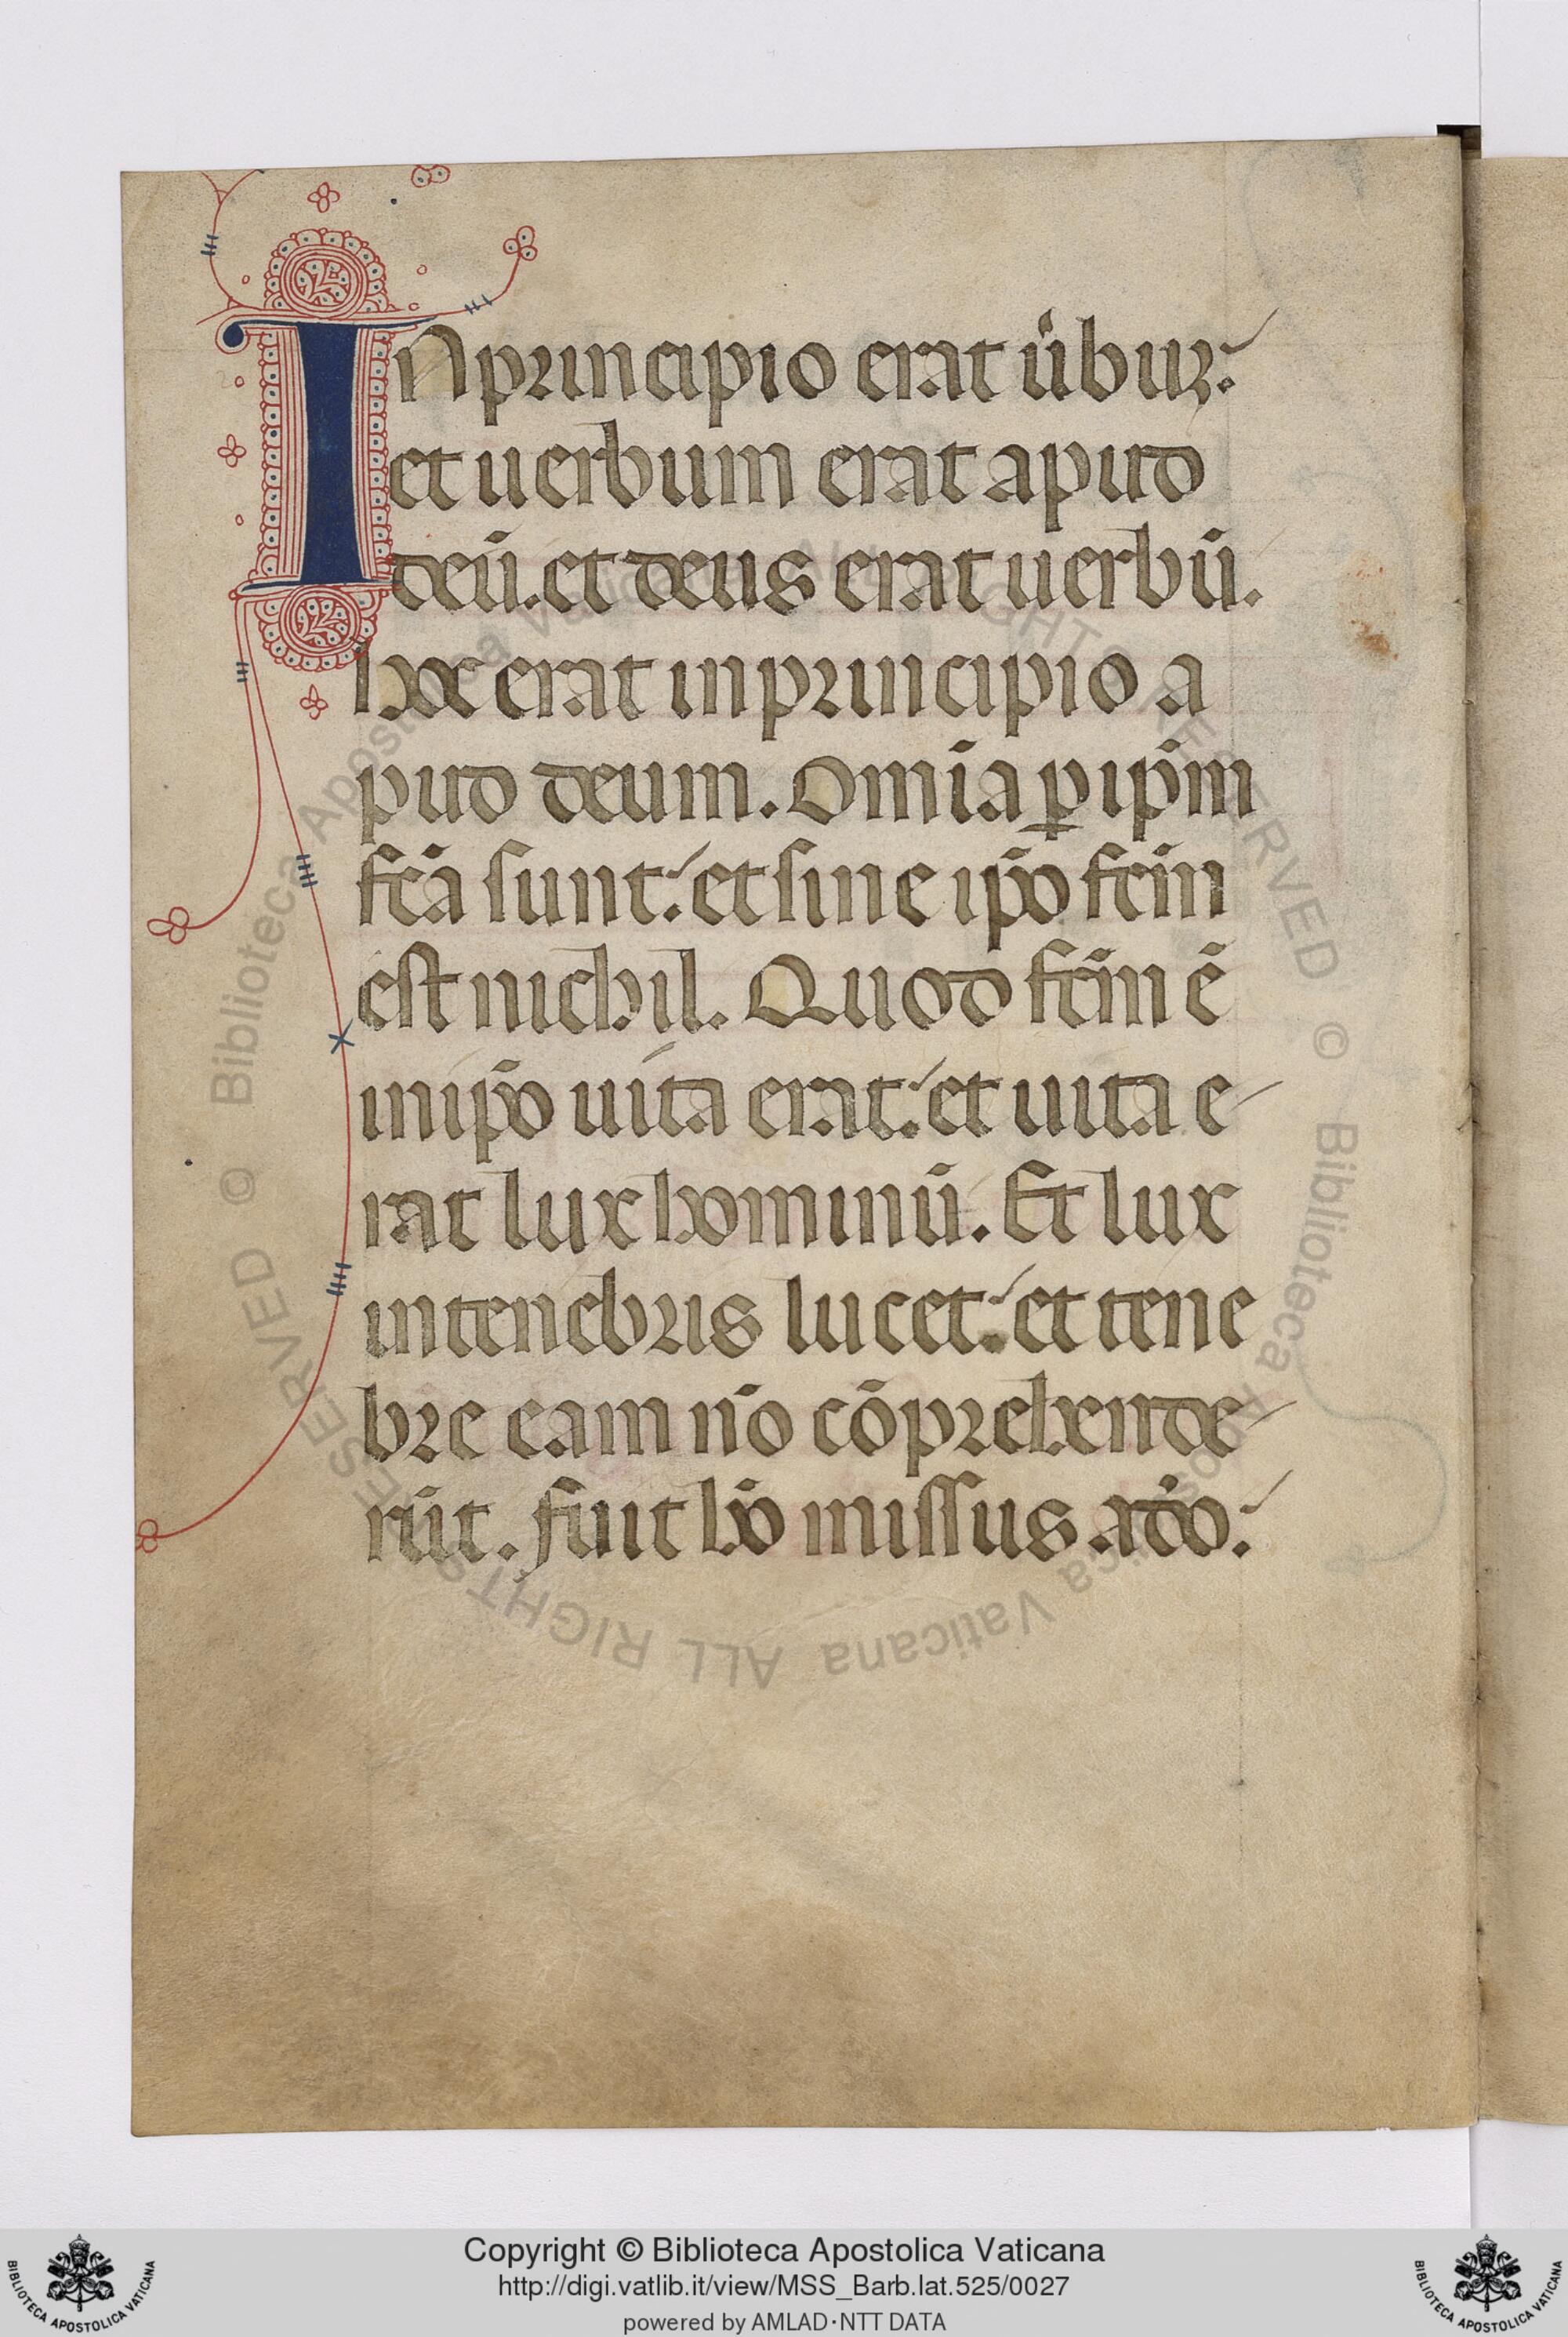 IN principio erat u͛buꝫ:
et uerbum erat apud
deū. et deus erat uerbū.
hoc erat in principio a
pud deum. Omīa ꝑ ip̄m
fc̄a sunt: et sine ip̄o fc̄m
est nichil. Quod fc̄m ē
in ip̄o uita erat: et uita e-
rat lux hominū. Et lux
in tenebris lucet: et tene
bre eam nō cōprehende-
rūt. fuit hō missus a dō:
© Biblioteca Apostolica Vaticana ALL RIGHTS RESERVED © Biblioteca Apostolica Vaticana ALL RIGHTS RESERVED
Copyright © Biblioteca Apostolica Vaticana
http://digi.vatlib.it/view/MSS_Barb.lat.525/0027
powered by AMLAD·NTT DATA
BIBLIOTECA APOSTOLICA VATICANA
BIBLIOTECA APOSTOLICA VATICANA